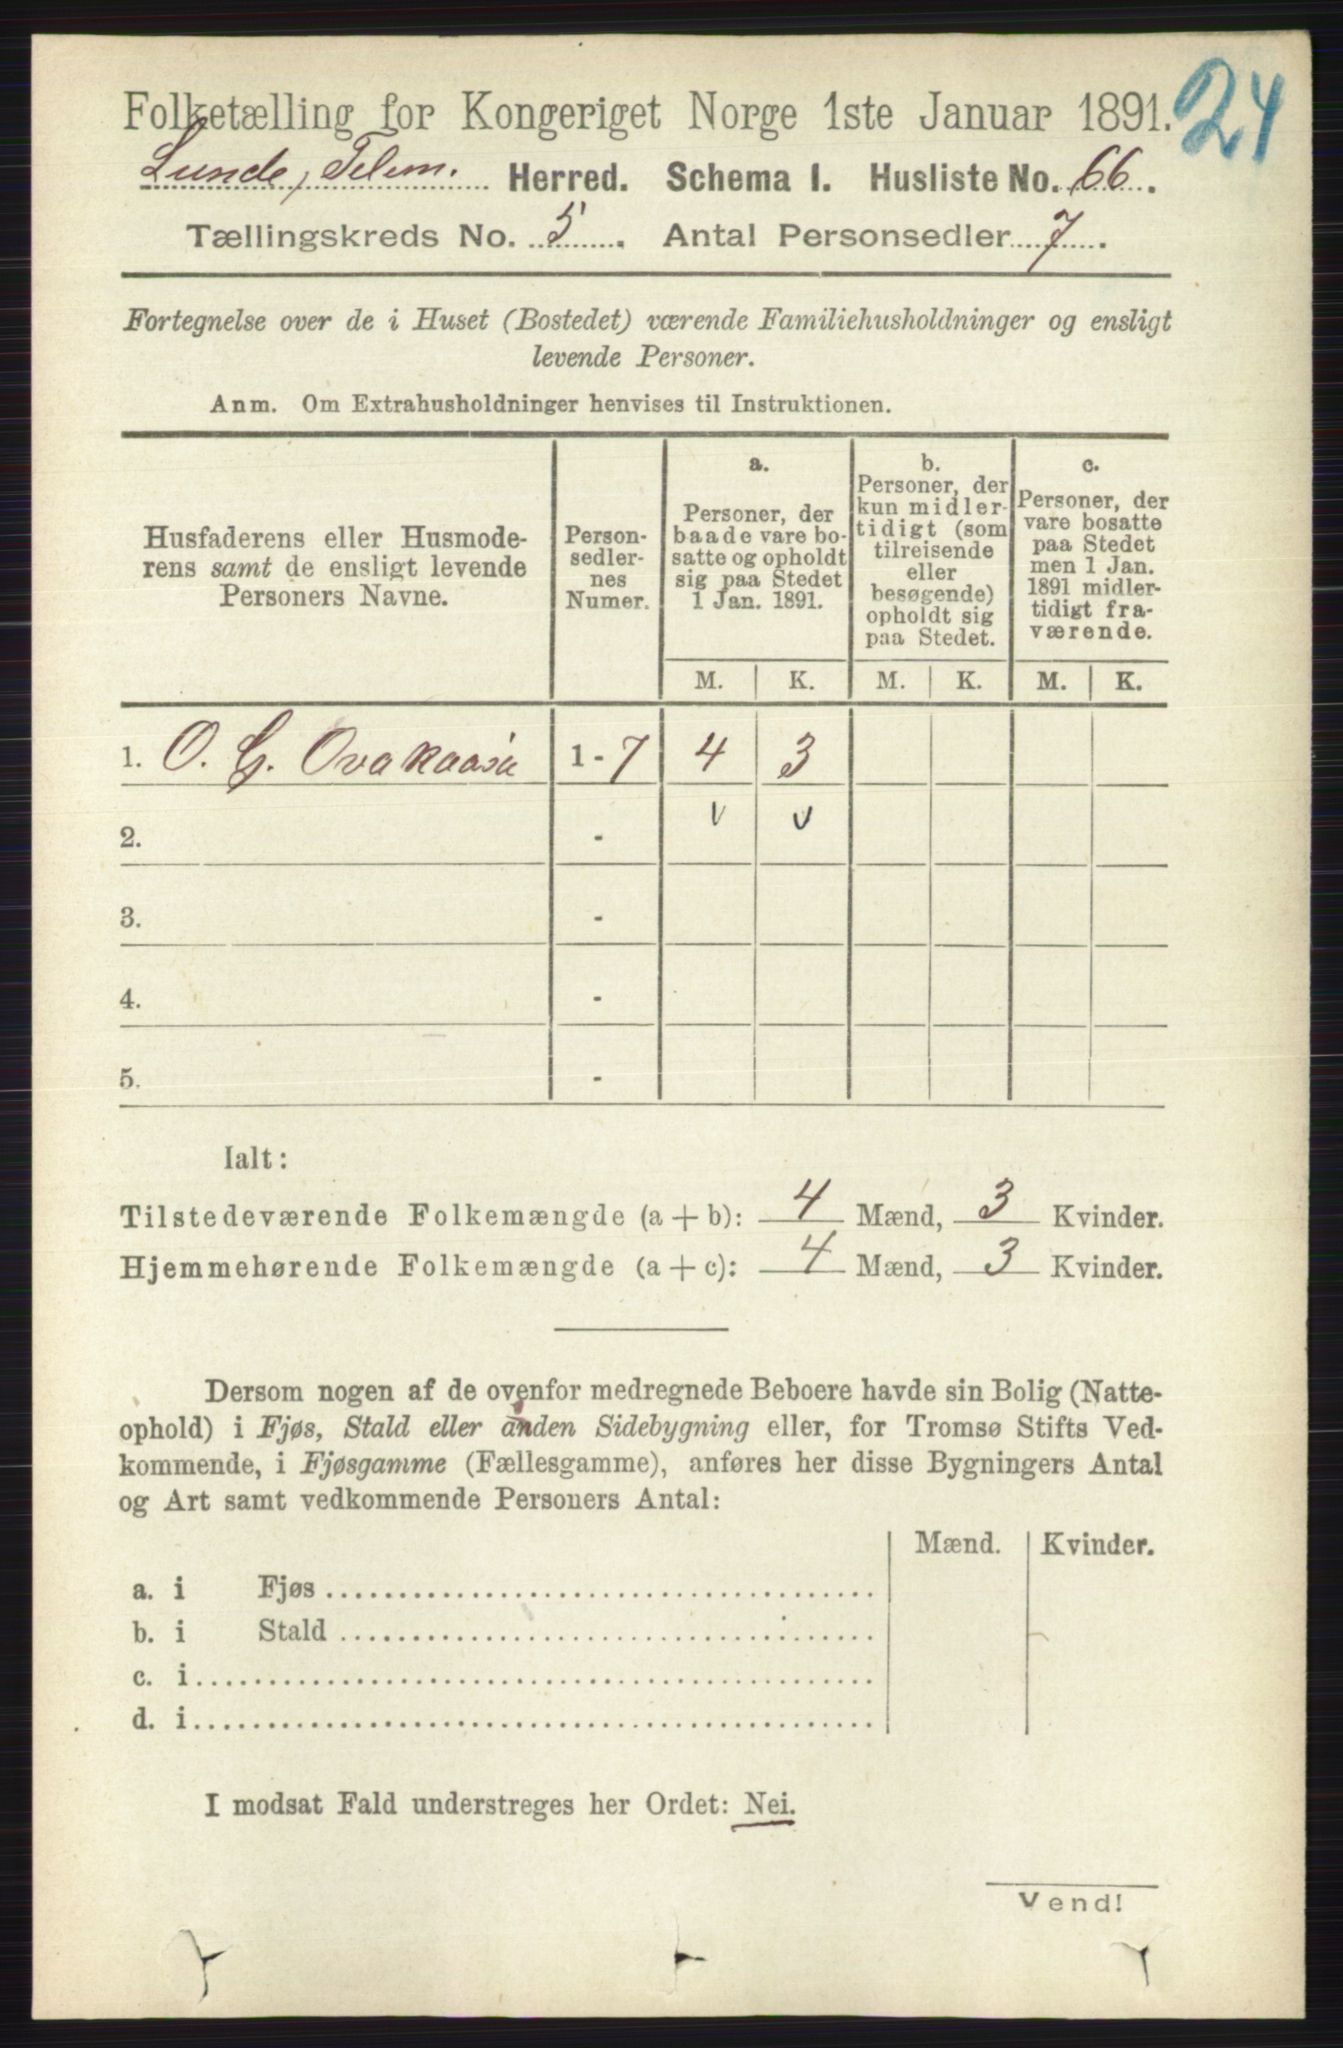 24
Folketælling for Kongeriget Norge 1ste Januar 1891.
Lunde, Telem. Herred. Schema I. Husliste No. 66.
Tællingskreds No. 5. Antal Personsedler 7.
Fortegnelse over de i Huset (Bostedet) værende Familiehusholdninger og ensligt
levende Personer.
Anm. Om Extrahusholdninger henvises til Instruktionen.
Husfaderens eller Husmode-
rens samt de ensligt levende
Personers Navne.
Person-
sedler-
nes
Numer.
a.
Personer, der
baade vare bo-
satte og opholdt
sig paa Stedet
1 Jan. 1891.
b.
Personer, der
kun midler-
tidigt (som
tilreisende
eller
besøgende)
opholdt sig
paa Stedet.
c.
Personer, der
vare bosatte
paa Stedet
men 1 Jan.
1891 midler-
tidigt fra-
værende.
M. K. M. K. M. K.
1. O. G. 1 - 7 4 3
2. - v v
3. -
4. -
5. -
Ialt:
Tilstedeværende Folkemængde (a + b): 4 Mænd, 3 Kvinder.
Hjemmehørende Folkemængde (a + c): 4 Mænd, 3 Kvinder.
Dersom nogen af de ovenfor medregnede Beboere havde sin Bolig (Natte-
ophold) i Fjøs, Stald eller anden Sidebygning eller, for Tromsø Stifts Ved-
kommende, i Fjøsgamme (Fællesgamme), anføres her disse Bygningers Antal
og Art samt vedkommende Personers Antal:
Mænd. Kvinder.
a. i Fjøs
b. i Stald
c. i
d. i
I modsat Fald understreges her Ordet: Nei.
Vend!